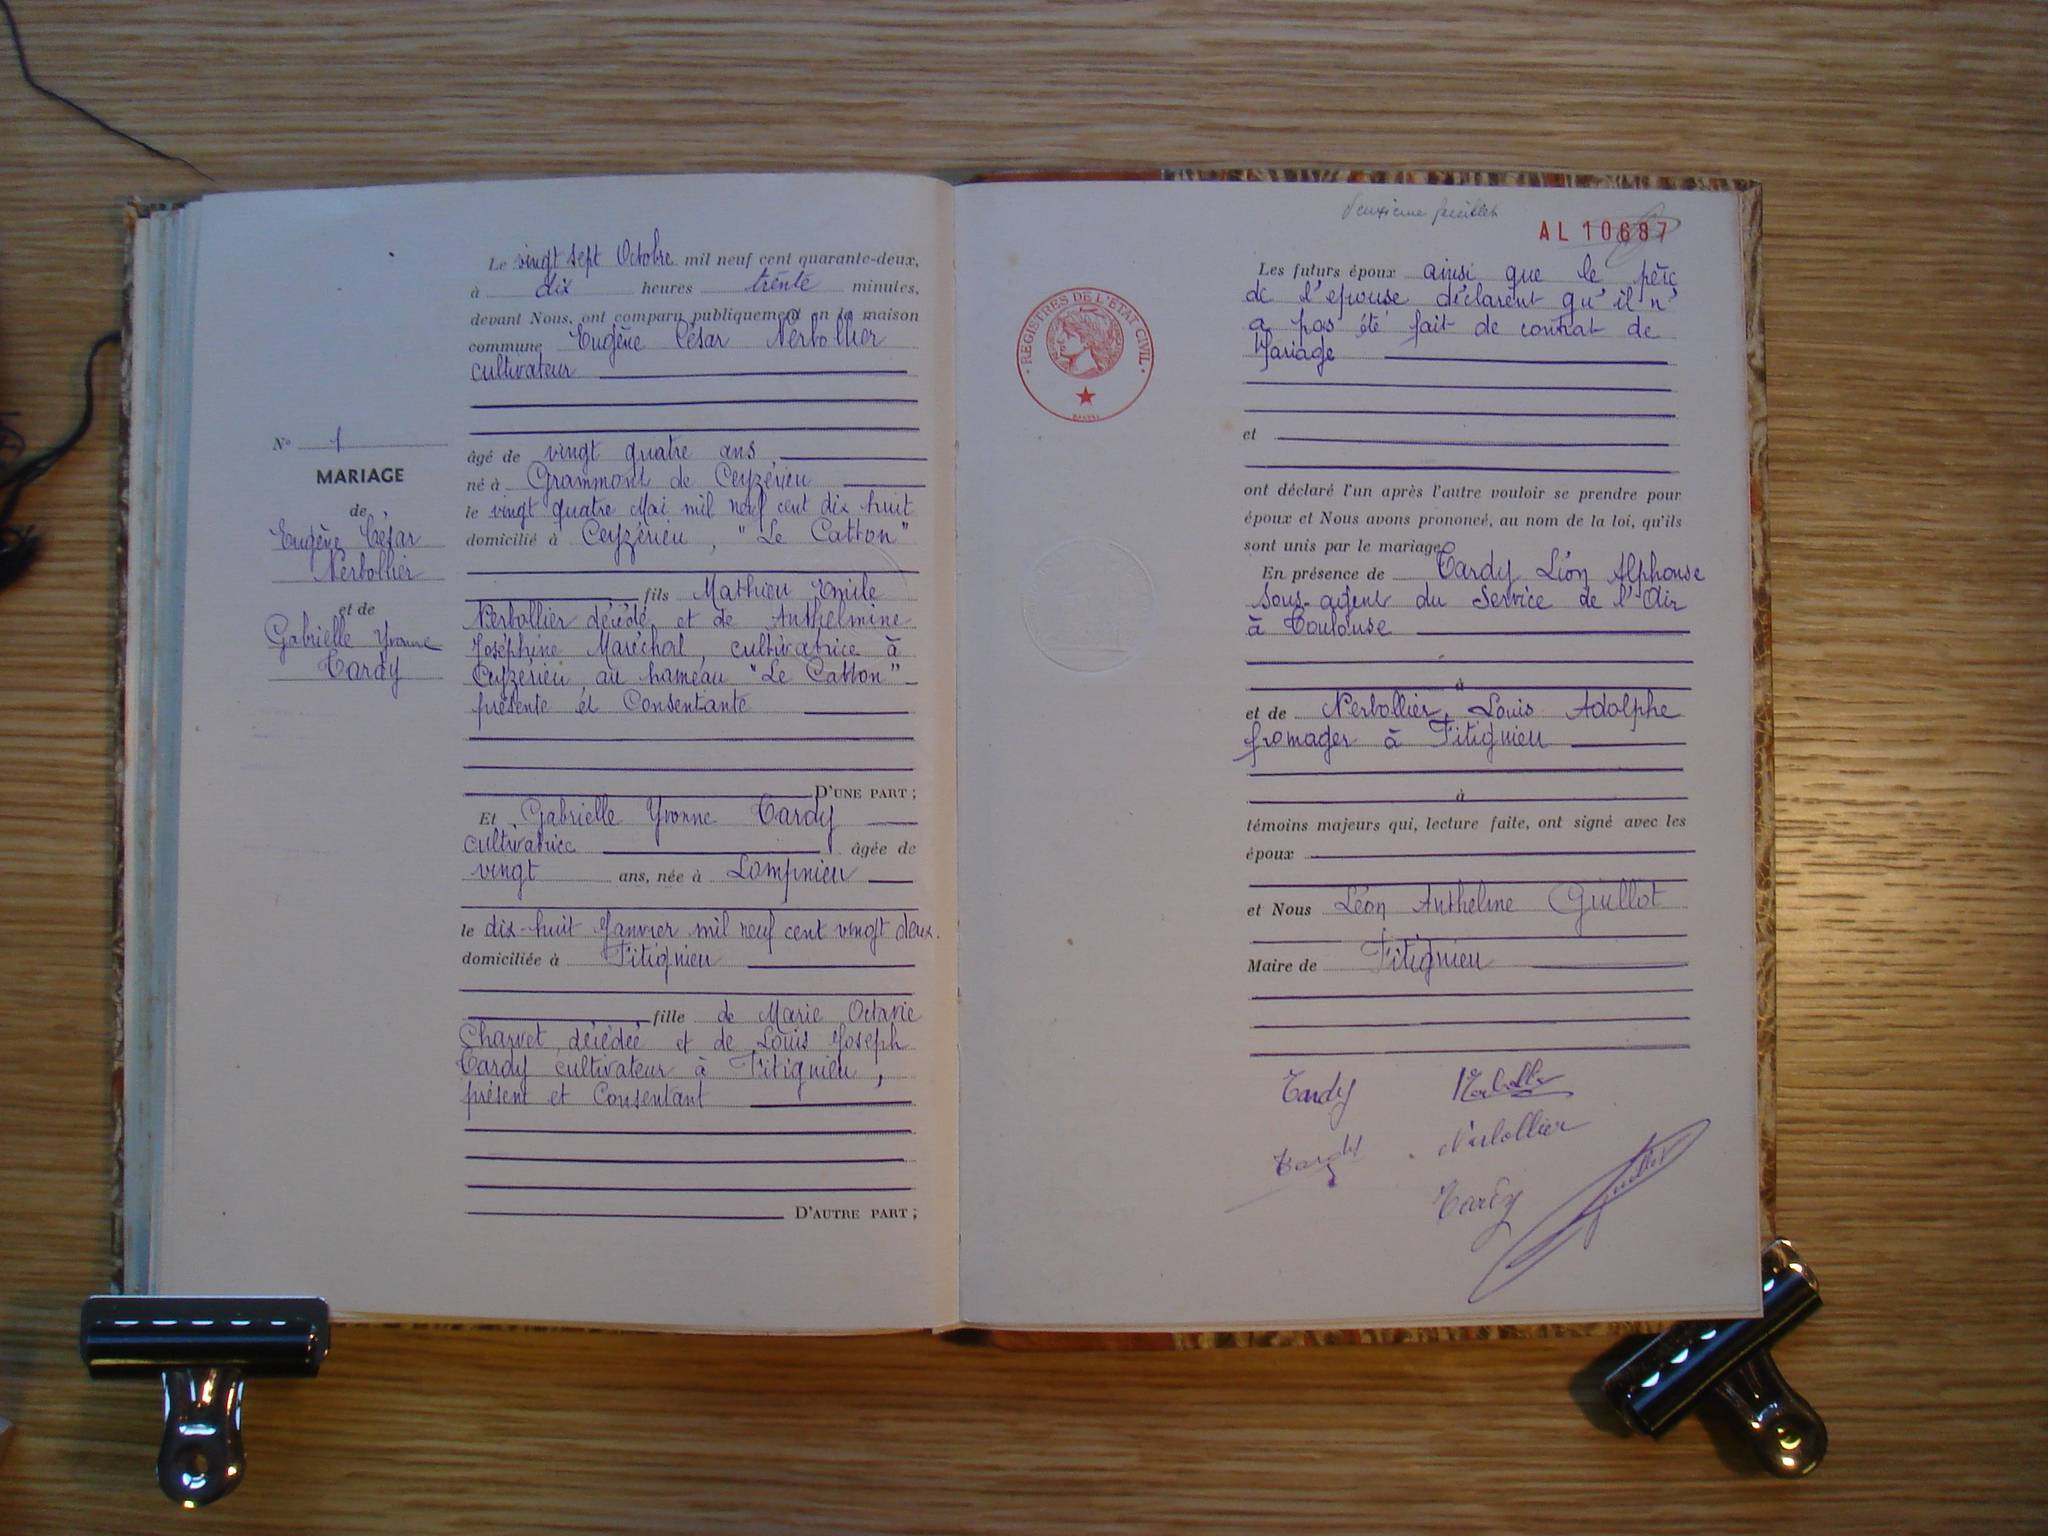 N° 1
MARIAGE
de
Eugène César
Nerbollier
et de
Gabrielle Yvonne
Tardy
Le vingt sept Octobre mil neuf cent quarante-deux,
à dix heures trente minutes,
devant Nous, ont comparu publiquement en la maison
commune Eugène César Nerbollier
cultivateur
âgé de vingt quatre ans
né à Grammont de Ceyzérieu
le vingt quatre Mai mil neuf cent dix huit
domicilié à Ceyzérieu, "Le Catton"
fils Mathieu Emile
Nerbollier décédé et de Anthelmine
Joséphine Maréchal, cultivatrice à
Ceyzérieu au hameau "Le Catton"
présente et Consentante
D'UNE PART ;
Et Gabrielle Yvonne Tardy
cultivatrice âgée de
vingt ans, née à Lompnieu
le dix-huit Janvier mil neuf cent vingt deux.
domiciliée à Fitignieu
fille de Marie Octavie
Charvet décédée et de Louis Joseph
Tardy cultivateur à Fitignieu,
présent et Consentant
D'AUTRE PART ;
deuxième feuillet
AL 10687
REGISTRES DE L'ETAT CIVIL
Les futurs époux ainsi que le père
de l'épouse déclarent qu'il n'
a pas été fait de contrat de
Mariage
et
ont déclaré l'un après l'autre vouloir se prendre pour
époux et Nous avons prononcé, au nom de la loi, qu'ils
sont unis par le mariage.
En présence de Tardy Léon Alphonse
Sous-agent du Service de l'Air
à Toulouse
à
et de Nerbollier Louis Adolphe
fromager à Fitignieu
à
témoins majeurs qui, lecture faite, ont signé avec les
époux
et Nous Léon Anthelme Guillot
Maire de Fitignieu
Tardy Nerbollier
Tardy Nerbollier
Tardy Guillot